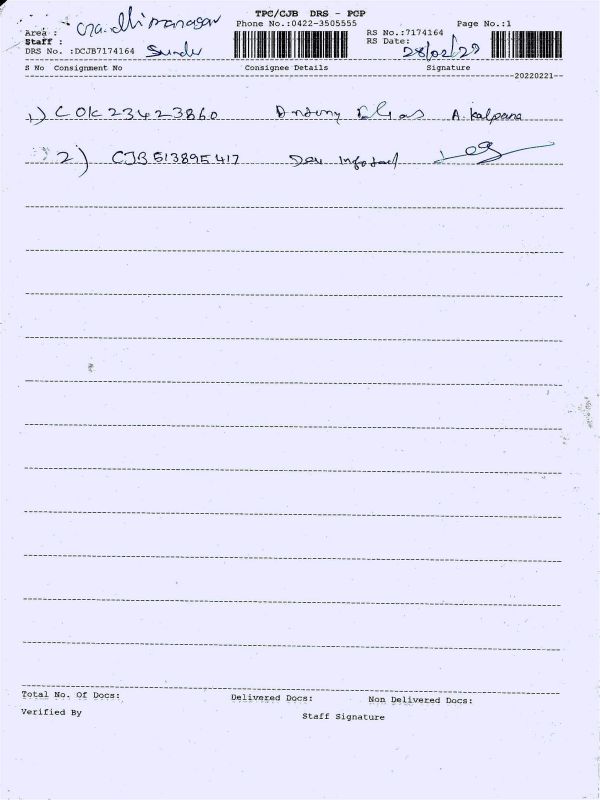 TPC/CJB DRS - PCP
Area : Gandhimanagar Phone No.:0422-3505555 Page No.:1
Staff : RS No.:7174164
DRS No. :DCJB7174164 Sunder RS Date: 28/02/22
S No Consignment No Consignee Details Signature
20220221
1) COK 23423860 Antony Elias A. Kalpana
2) CJB 513895417 Dev Infotech
Total No. Of Docs: Delivered Docs: Non Delivered Docs:
Verified By Staff Signature